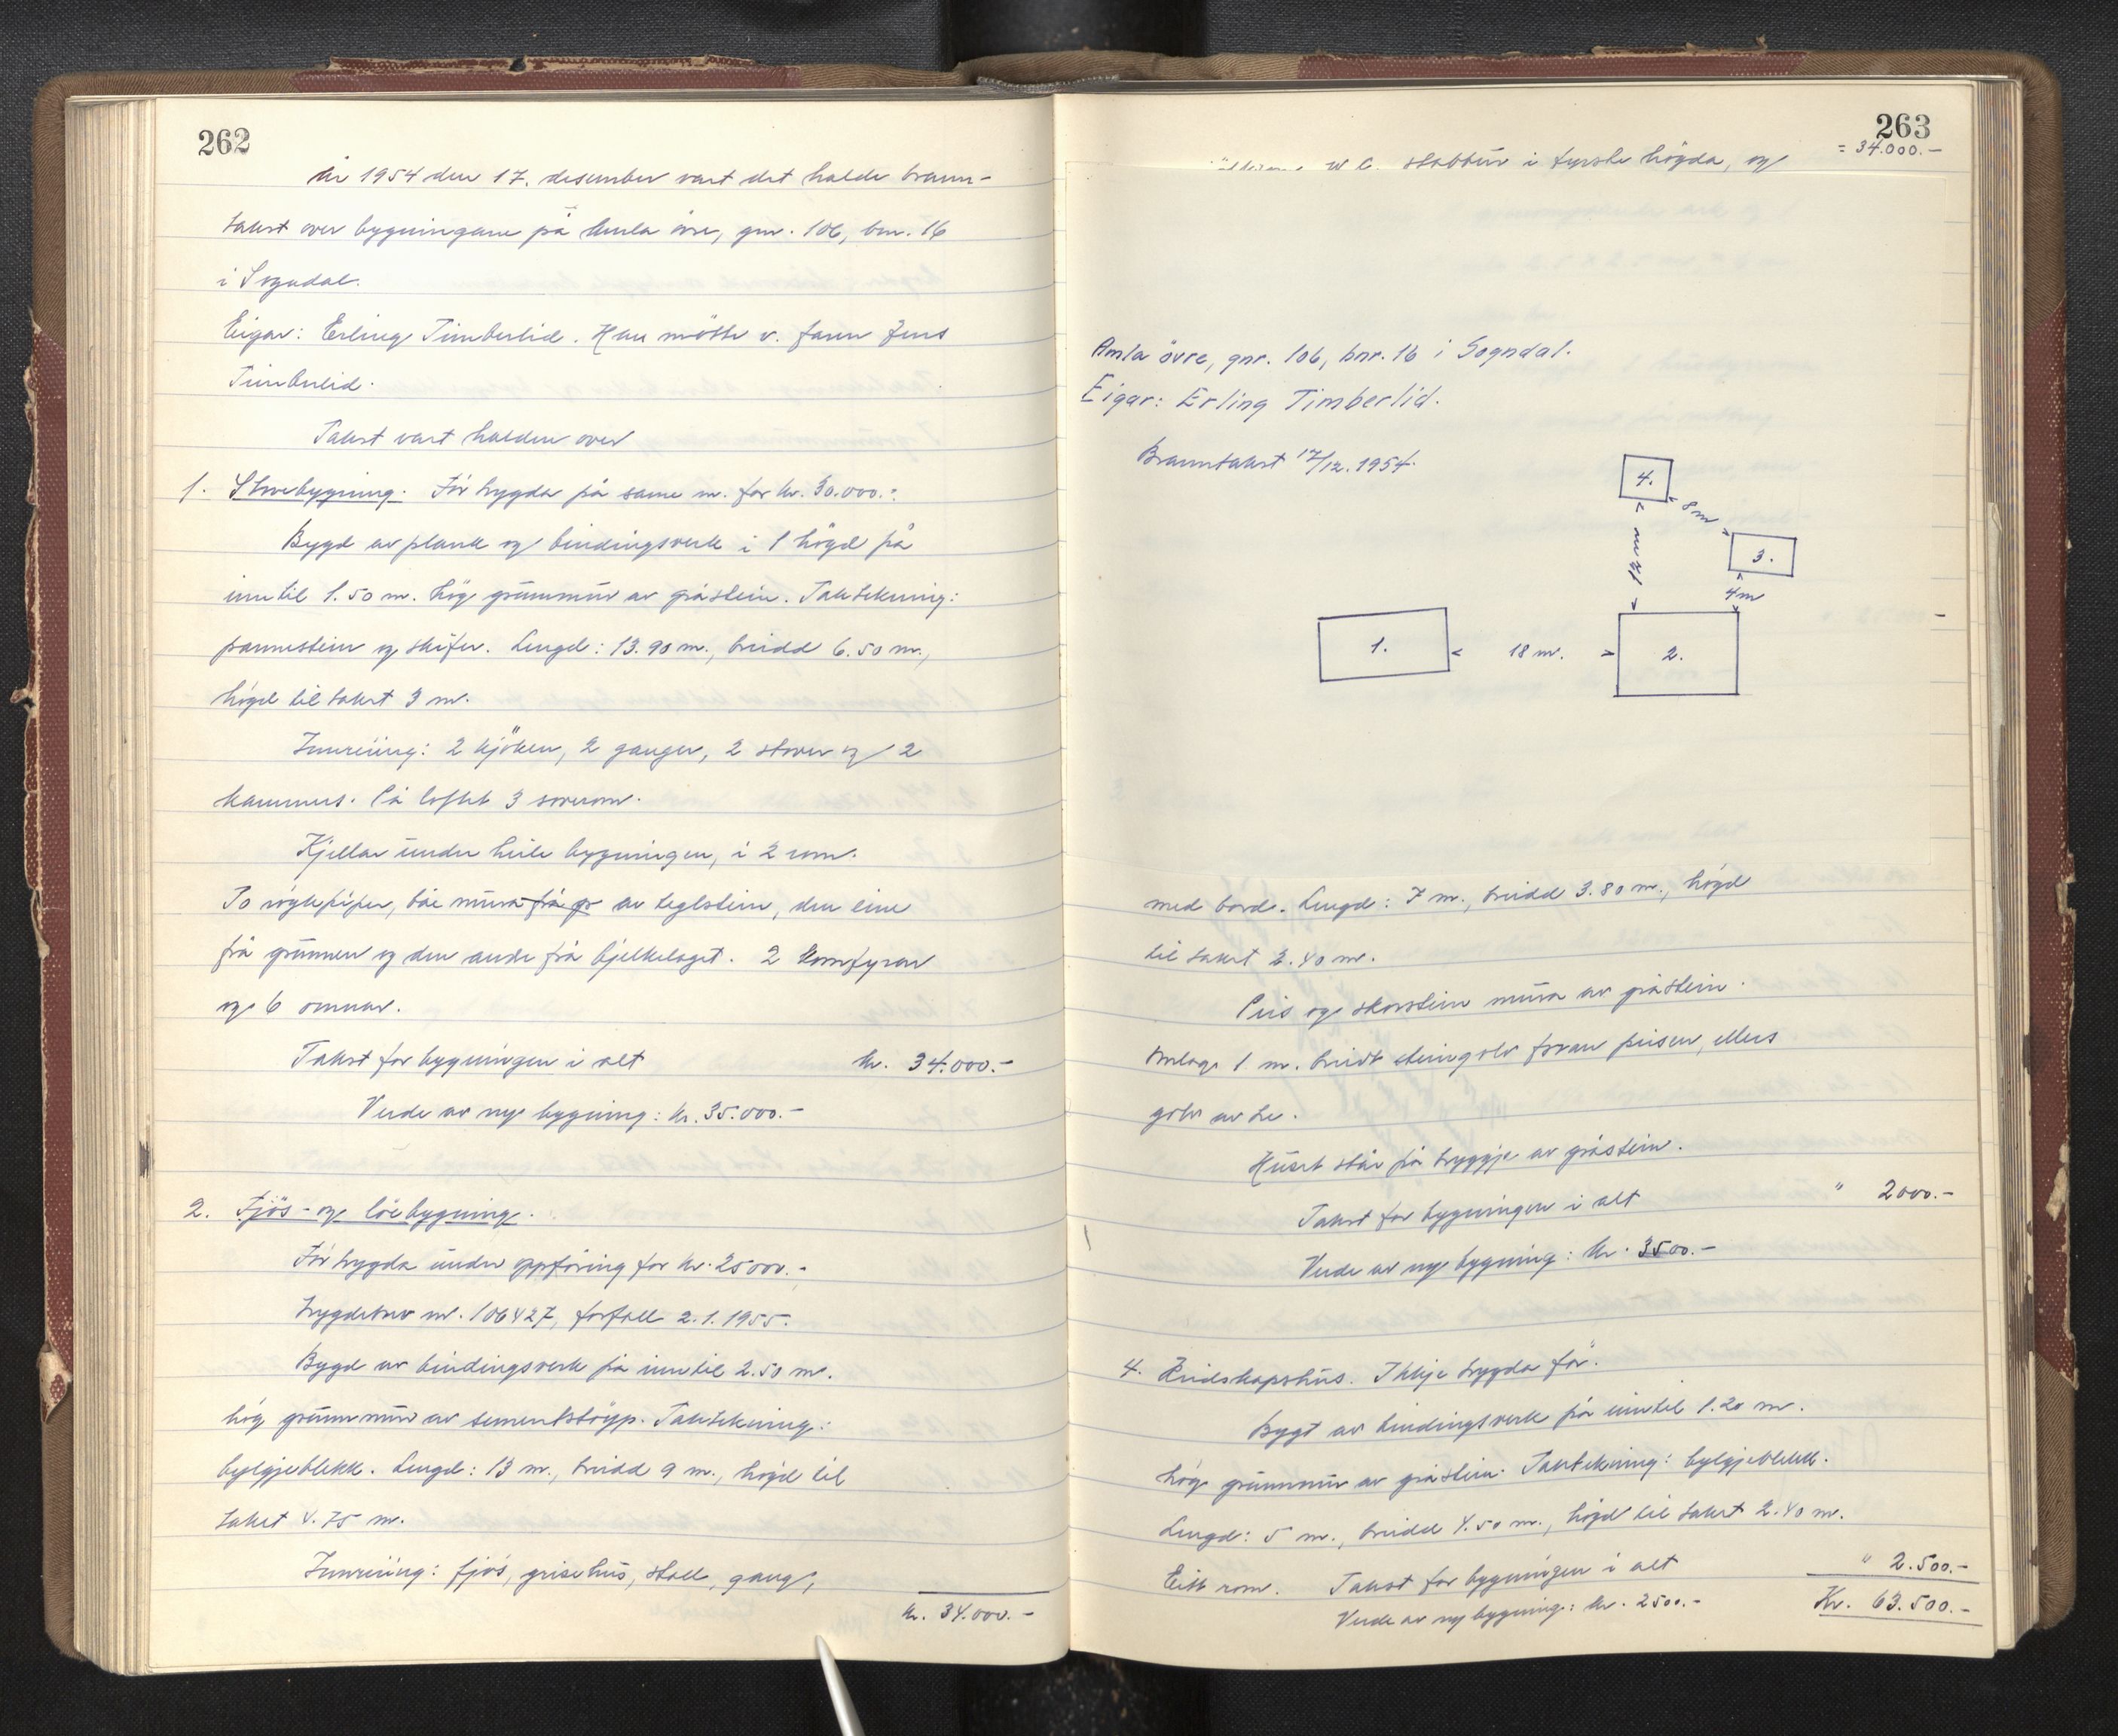 262
År 1954 den 17. desember vart det halde brann-
takst over bygningane på Amla övre, gnr. 106, bnr. 16
i Sogndal.
Eigar: Erling Timberlid. Han mötte v. faren Jens
Timberlid.
Takst vart halden over
1. Stovebygning. För trygda på same nr. for kr. 30.000.-
Bygd av plank og bindingsverk i 1 högd på
inntil 1.50 m. hög grunnmur av gråstein. Taktekning:
pannestein og skifer. Lengd: 13.90 m., breidd 6.50 m.,
högd til taket 3 m.
Innreiing: 2 kjöken, 2 ganger, 2 stover og 2
kammers. På loftet 3 soverom.
Kjellar under heile bygningen, i 2 rom.
To röykpiper, båe mura frå gr av teglstein, den eine
frå grunnen og den andre frå bjelkelaget. 2 komfyrar
og 6 omnar.
Takst for bygningen i alt kr. 34.000.-
Verde av ny bygning: kr. 35.000.-
2. Fjös- og löebygning.
För trygda under oppföring for kr. 25000.-
trygdebrev nr. 106427, forfall 2.1.1955.
Bygd av bindingsverk på inntil 2.50 m.
hög grunnmur av sementstöyp. Taktekning:
bylgjeblekk. Lengd: 13 m., breidd 9 m., högd til
taket 4.75 m.
Innreiing: fjös, grisehus, stall, gang,
kr. 34.000.-
263
= 34.000.-
W.C. stabbur i fyrste högda, og
Amla övre, gnr. 106, bnr. 16 i Sogndal.
Eigar: Erling Timberlid.
Branntakst 17/12. 1954.
4.
8 m
3.
12 m
4 m
1.
18 m.
2.
med bord. Lengd: 7 m., breidd 3.80 m., högd
til taket 2.40 m.
Peis og skorstein mura av gråstein.
Omlag 1 m. breidt steingolv foran peisen, ellers
golv av tre.
Huset står på tryggje av gråstein.
Takst for bygningen i alt " 2000.-
Verde av ny bygning: kr. 3500.-
4. Reidskapshus. Ikkje trygda för.
Bygt av bindingsverk på inntil 1.20 m.
hög grunnmur av gråstein. Taktekning: bylgjeblekk.
Lengd: 5 m., breidd 4.50 m., högd til taket 2.40 m.
Eitt rom. Takst for bygningen i alt " 2.500.-
Verde av ny bygning: kr. 2500.- Kr. 63.500.-